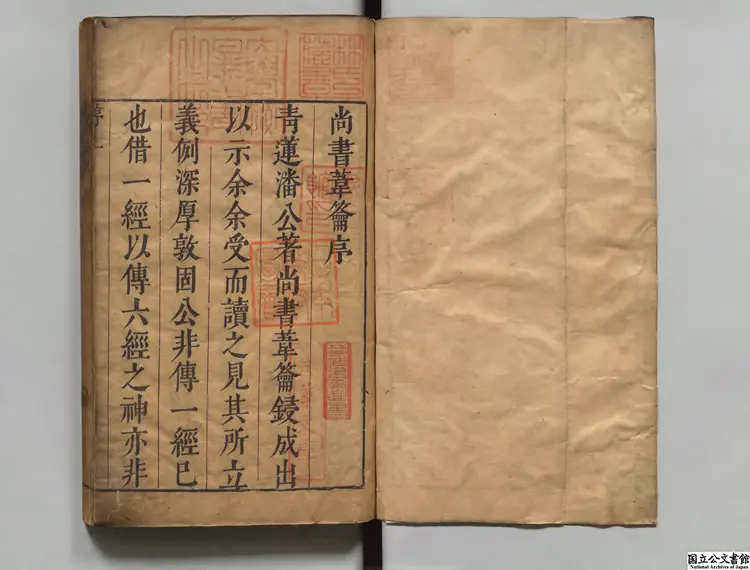 尚書葦籥序
青蓮潘公著尚書葦籥鋟成出
以示余余受而讀之見其所立
義例深厚敦固公非傳一經已
也借一經以傳六經之神亦非
序一
国立公文書館
National Archives of Japan